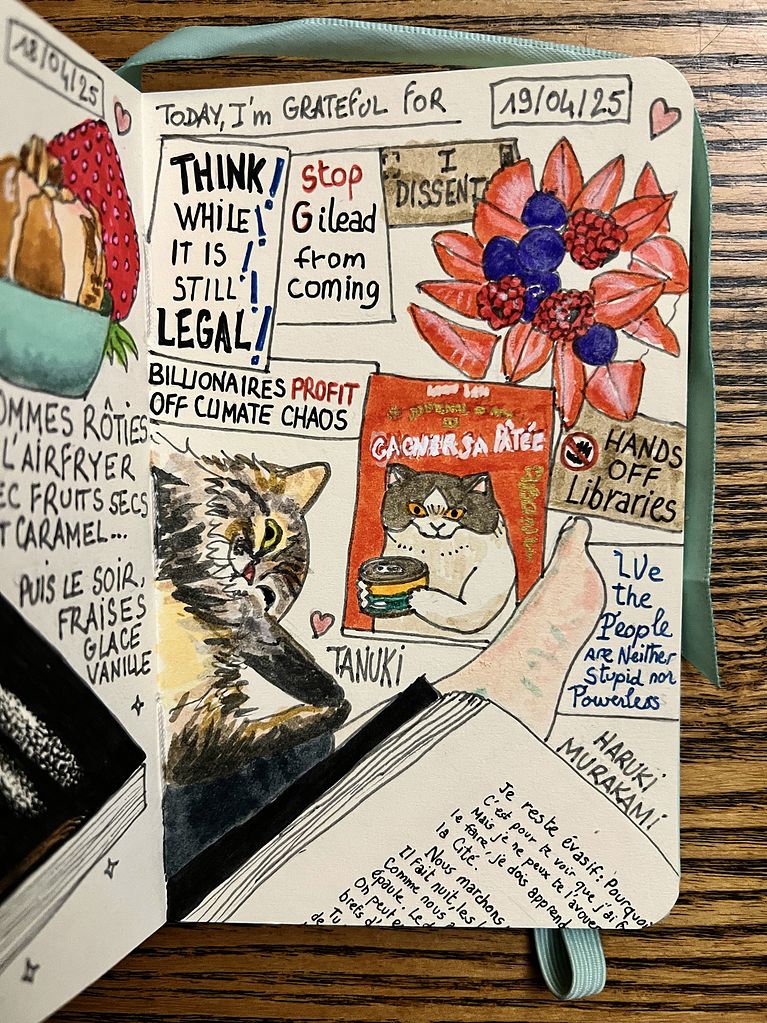 18/04/25
OMMES RÔTIES
L'AIRFRYER
EC FRUITS SECS
T CARAMEL...
PUIS LE SOIR,
FRAISES
GLACE
VANILLE
TODAY, I'm GRATEFUL FOR
19/04/25
THINK!
WHILE!
IT IS !
STILL!
LEGAL!
stop
Gilead
from
coming
I
DISSENT
BILLIONAIRES PROFIT
OFF CLIMATE CHAOS
GAGNER SA PÂTÉE
HANDS
OFF
Libraries
TANUKI
We
the
People
are Neither
Stupid nor
Powerless
HARUKI
MURAKAMI
Je reste évasif: Pourquoi
C'est pour te voir que j'ai f
Mais je ne peux te l'avouer
le faire, je dois apprend
la Cité.
Nous marchons
Il fait nuit, les l
Comme nous a
épaule. Le d
On peut e
brefs d'
Tu
de